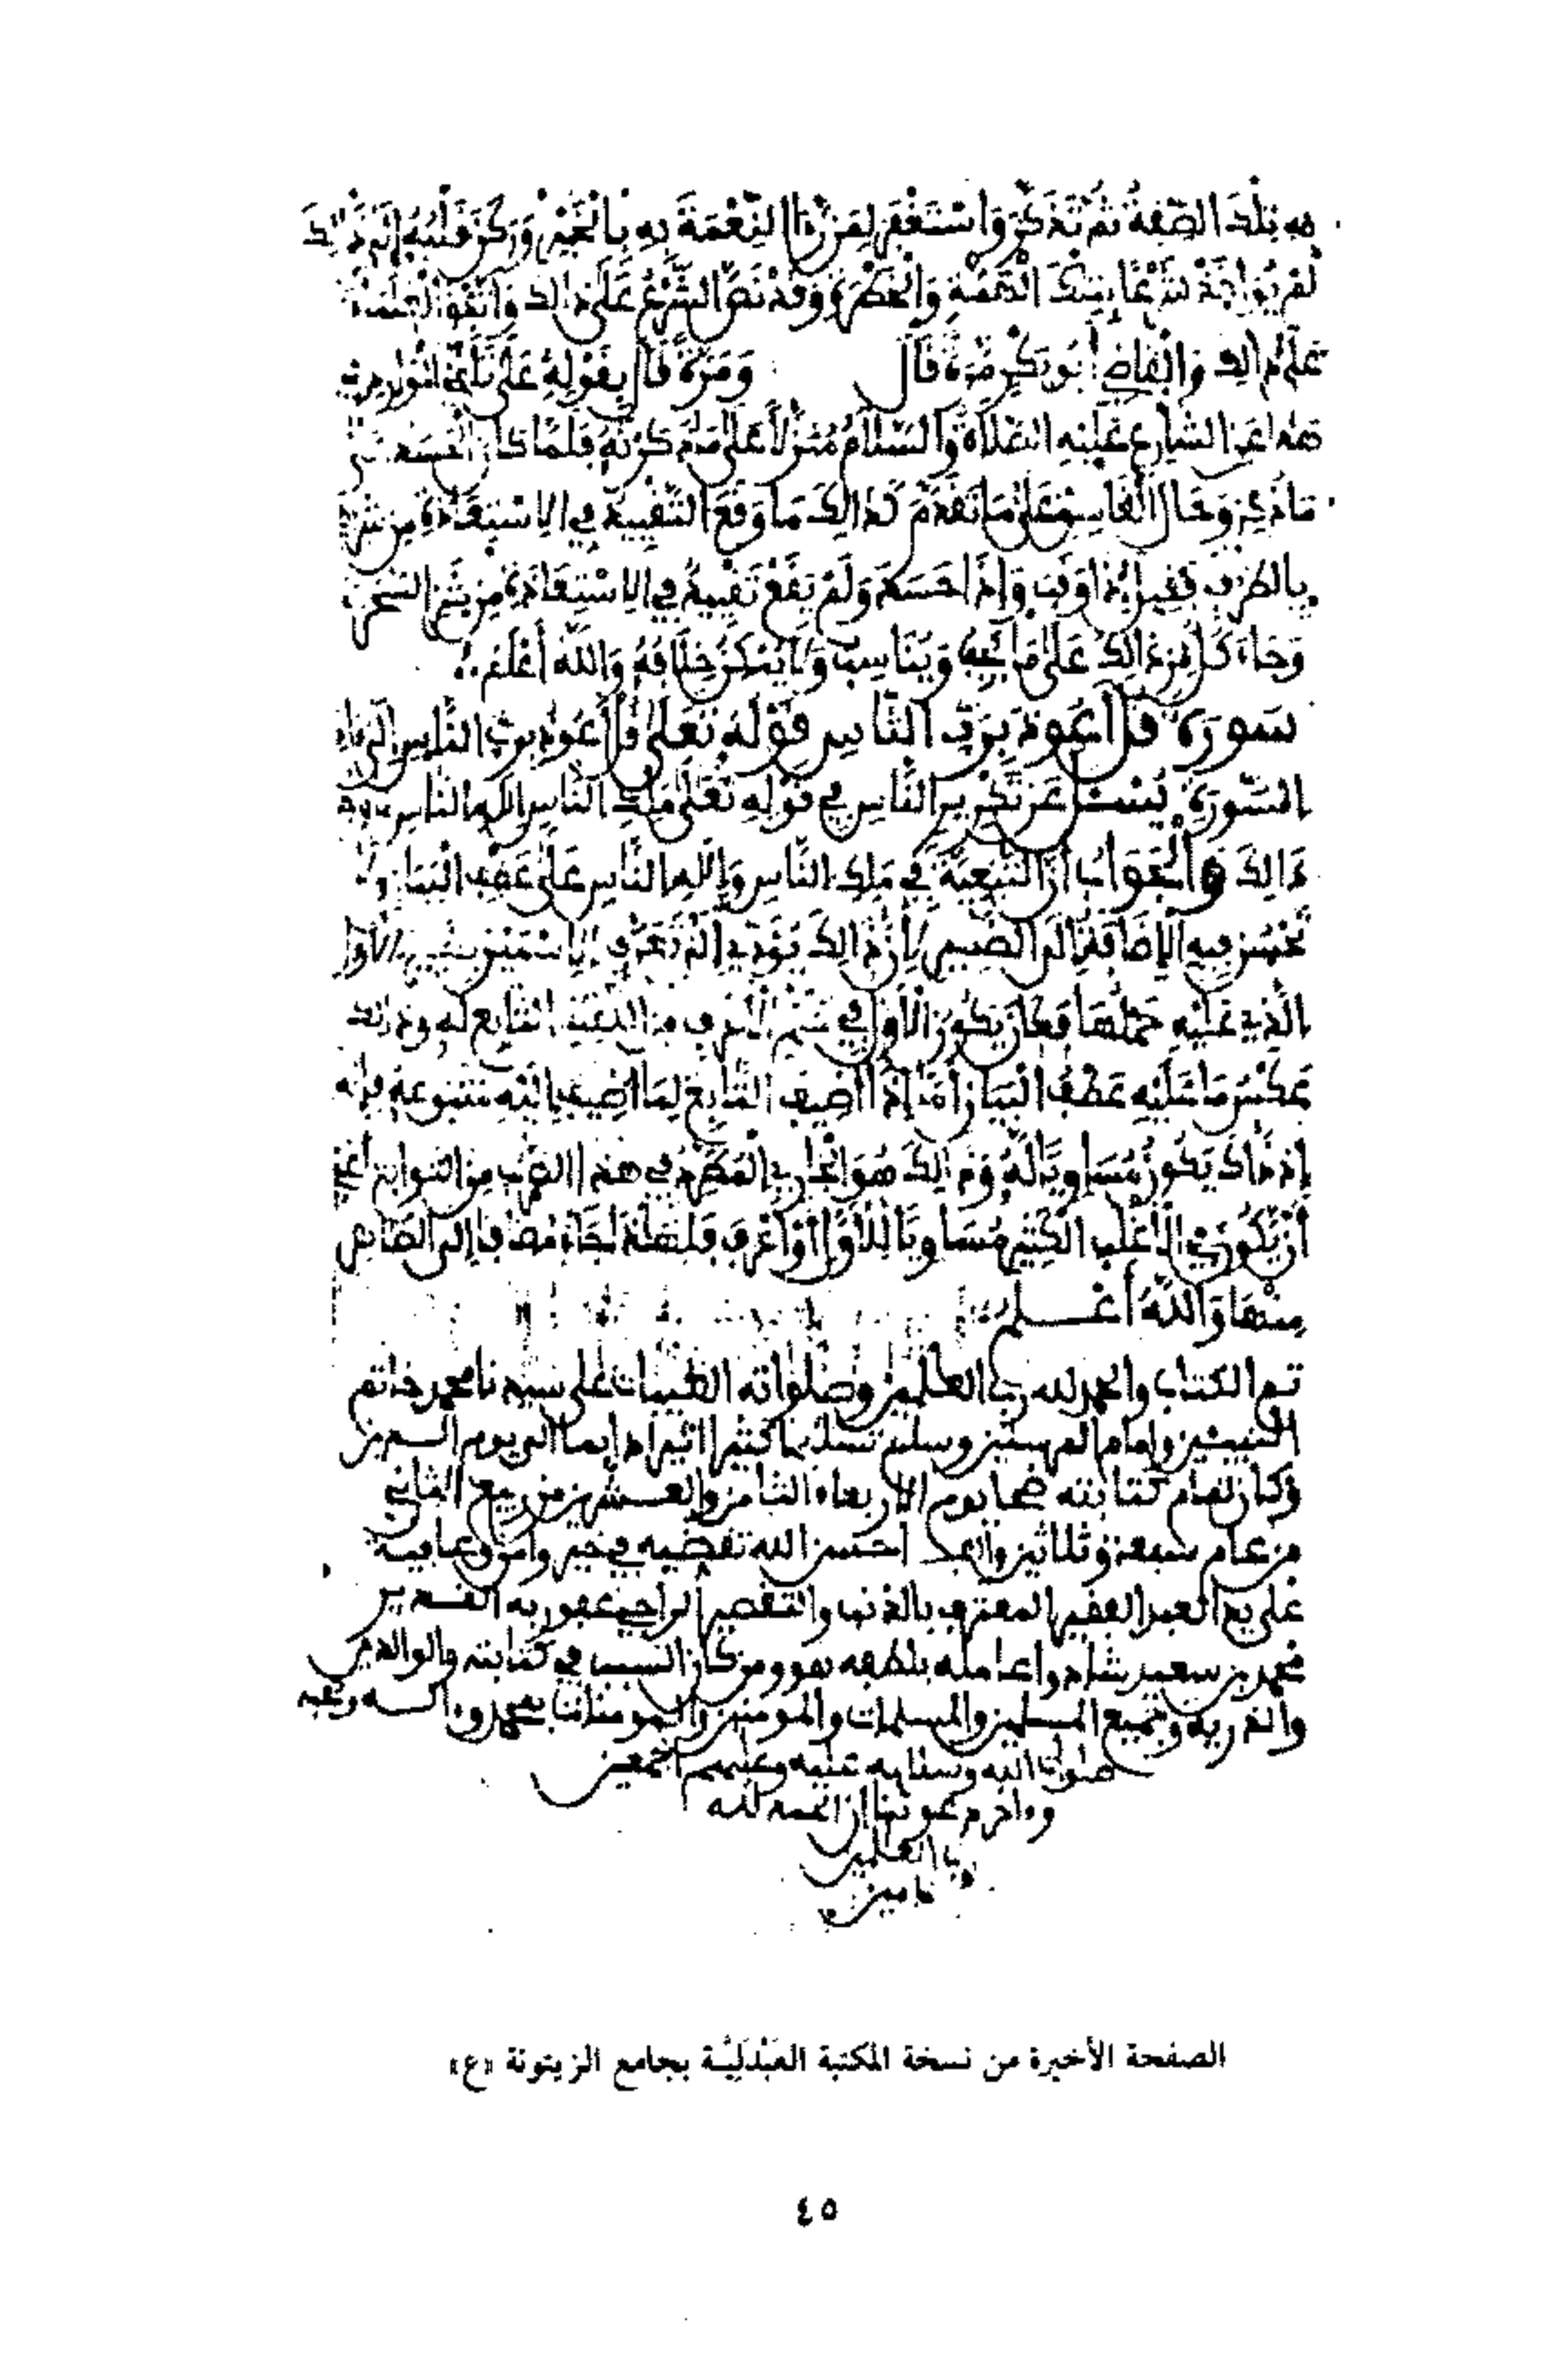 به تلك الصفة ثم تذكر واستغفر لمن النعمة به بالخير وركن قلبه إلى ذلك
لم يواخذ شرعا بتلك الهمة والخطرة وقد نص الشرع على ذالك واتفق العلماء
على ذالك والقاضي أبو بكر مرة قال ومرة قال بقوله على تأتي
هذا عن الشارع عليه الصلاة والسلام منزلا على ما ذكرته فلما كان الحسد
ما ذكر وحال الغاسق على ما تقدم لذالك ما وقع التقييد في الاستعاذة من شرها
بالظرف فقيل إذا وقب وإذا حسد ولم يقع تقييد في الاستعاذة من شر السحر
وجاء كل من ذالك على ما يجب ويناسب ولا يمكن خلافه والله أعلم
سورة قل أعوذ برب الناس قوله تعلى قل أعوذ برب الناس إلى
السورة يسئل عن تكرير الناس في قوله تعلى ملك الناس إله الناس
ذالك والجواب أن التبعية في ملك الناس وإله الناس على عطف البيان ولا
تحسن فيه الإضافة إلى الضمير لأن ذالك يؤدي إلى تعرف الاسمين الأول
الذي عليه حملها فكان يكون الأول في التابع له وذالك
عكس ما عليه عطف البيان أما إذا أضيف التابع لما أضيف إليه متبوعه فإنه
إذ ذاك يكون مساويا له وذالك هو الجاري المطرد في هذا الضرب من التوابع أعني
أن يكون في الأغلب الكثير مساويا للأول أو أعرف فلهذا جاء مضافا إلى الظاهر
منهما والله أعلم
تم الكتاب والحمد لله رب العلمين وصلواته الطيبات على سيدنا محمد خاتم
النبيئين وإمام المرسلين وسلم تسليما كثيرا أثيرا دايما إلى يوم الدين
وكان تمام كتابته ضحا يوم الاربعاء الثامن والعشرين من ربيع الثاني
من عام سبعة وثلاثين وألف احسن الله تقضيه في خير وأمن وعافية
على يد العبد الفقير المعترف بالذنب والتقصير الراجي عفو ربه القدير
محمد بن سعيد عامله بلطفه هو ومن كان السبب في كتابته والوالدين
والذرية وجميع المسلمين والمسلمات والمومنين والمومنات بمحمد وءاله وصحبه
صلوات الله وسلامه عليه وعليهم أجمعين
وءاخر دعوانا أن الحمد لله
رب العلمين
ءامين
الصفحة الأخيرة من نسخة المكتبة العَبْدَلِيَّة بجامع الزيتونة «ع»
٤٥